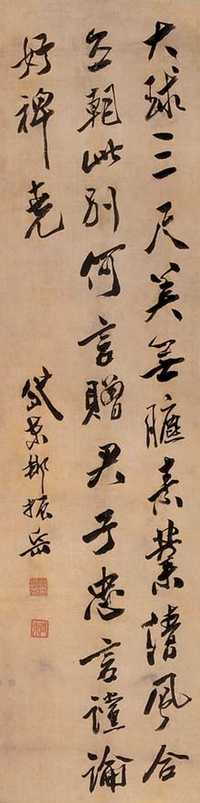 大球三尺美無雕素業清風合
立朝此別何言贈君子忠言讜論
好裨堯
岱東鄒振岳